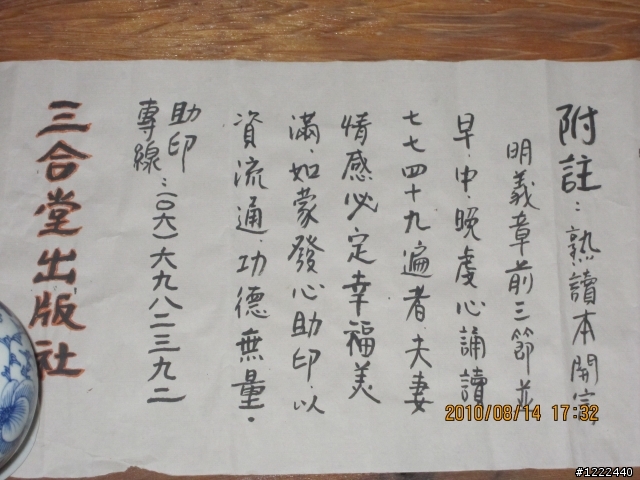 附註：熟讀本開宗
明義章前三節並
早.中.晚虔心誦讀
七七四十九遍者.夫妻
情感必定幸福美
滿.如蒙發心助印.以
資流通.功德無量.
助印
專線：(०六)六九八二三九二
三合堂出版社
2010/08/14 17:32
#1222440